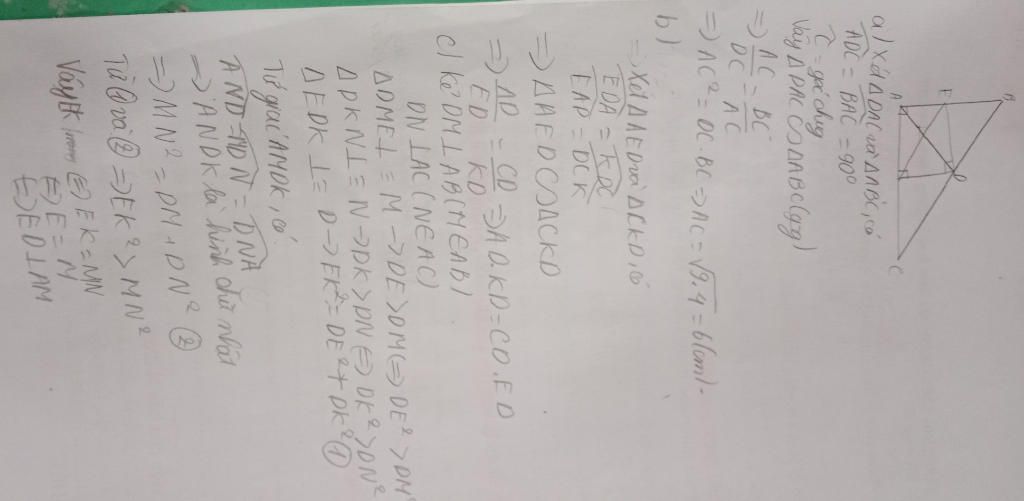 B
E
D
A
C
a) Xét ΔDAC và ΔABC, có
ADC = BAC = 90°
C = góc chung
Vậy ΔDAC ∽ ΔABC (gg)
=> AC/DC = BC/AC
=> AC² = DC.BC => AC = √9.4 = 6(cm).
b)
=> Xét ΔAED và ΔCKD, có
EDA = KDC
EAD = DCK
=> ΔAED ∽ ΔCKD
=> AD/ED = CD/KD => AD.KD = CD.ED
c) kẻ DM ⊥ AB (M ∈ AB)
DN ⊥ AC (N ∈ AC)
ΔDME ⊥ ≡ M -> DE > DM (=) DE² > DM²
ΔDKN ⊥ ≡ N -> DK > DN (=) DK² > DN²
ΔEDK ⊥ ≡ D -> EK² = DE² + DK² ①
Tứ giác AMDK, có
AND = MDN = DNA
=> ANDK là hình chữ nhật
=> MN² = DM + DN² ②
Từ ① và ② => EK² > MN²
Vậy EK (=) EK = MN
(=) E = M
(=) ED ⊥ AM